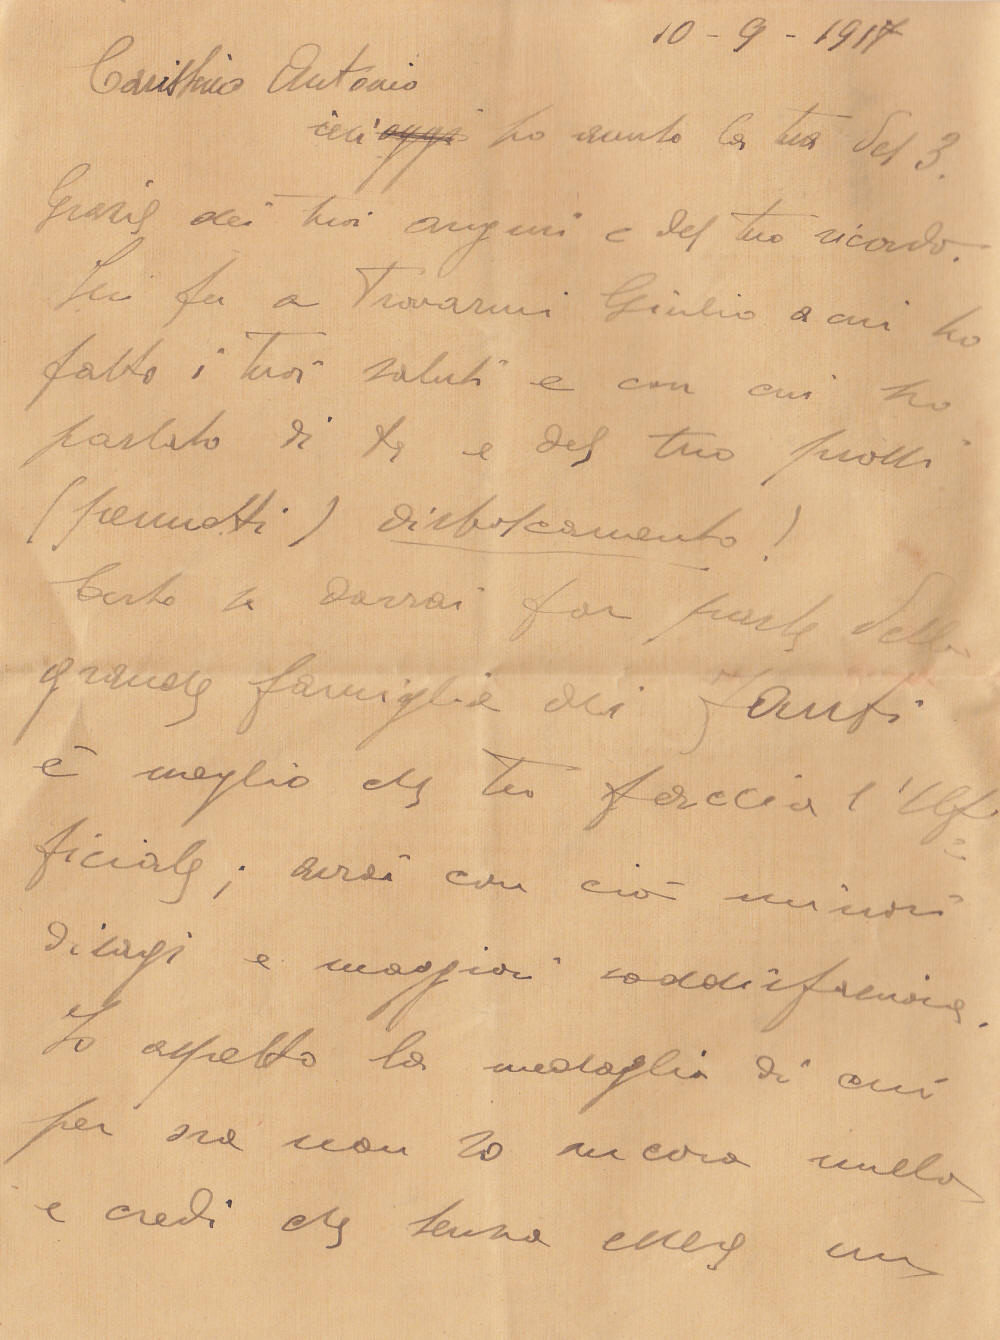 10-9-1917
Carissimo Antonio
ieri oggi ho avuto la tua del 3.
Grazie dei tuoi auguri e del tuo ricordo.
Ieri fu a Trovarmi Giulio a cui ho
fatto i tuoi saluti e con cui ho
parlato di te e del tuo
(pennotti) disboscamento!
Certo se dovrai far parte della
grande famiglia dei Fanti
è meglio che tu faccia l'Uf-
ficiale; avrai con ciò minori
disagi e maggiori soddisfazioni.
Io aspetto la medaglia di cui
per ora non so ancora nulla
e credi che senza essere un